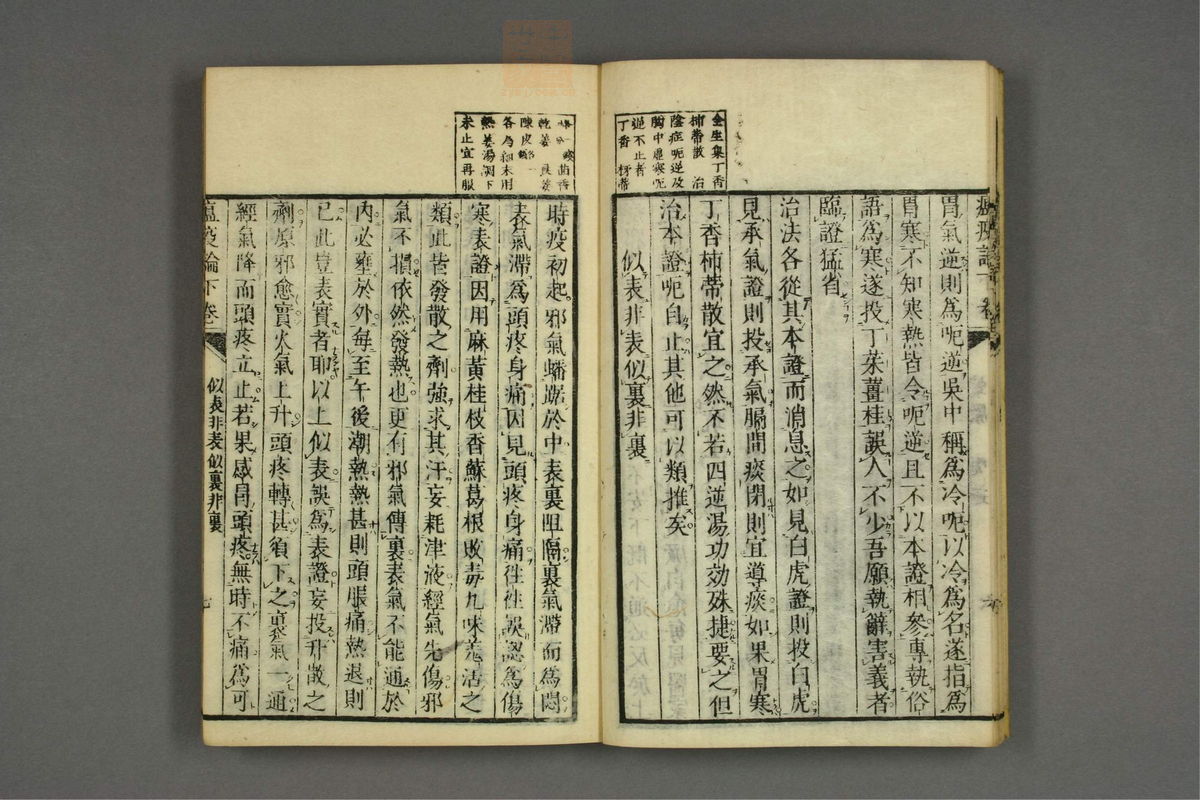 金生集丁香
柿蒂散 治
陰症呃逆及
胸中虛寒呃
逆不止者
丁香 柿蒂
胃氣逆則爲呃逆吳中稱爲冷呃以冷爲名遂指爲
胃寒不知寒熱皆令呃逆且不以本證相參專執俗
語爲寒遂投丁茱薑桂誤人不少吾願執辭害義者
臨證猛省
治法各從其本證而消息之如見白虎證則投白虎
見承氣證則投承氣膈間痰閉則宜導痰如果胃寒
丁香柿蒂散宜之然不若四逆湯功効殊捷要之但
治本證呃自止其他可以類推矣
似表非表似裏非裏
茴香
乾姜 良姜
陳皮
各爲細末用
熱姜湯調下
未止宜再服
時疫初起邪氣蟠踞於中表裏阻隔裏氣滯而爲悶
表氣滯爲頭疼身痛因見頭疼身痛往往誤認爲傷
寒表證因用麻黃桂枝香蘇葛根敗毒九味羌活之
類此皆發散之劑強求其汗妄耗津液經氣先傷邪
氣不損依然發熱也更有邪氣傳裏表氣不能通於
內必壅於外每至午後潮熱熱甚則頭脹痛熱退則
已此豈表實者耶以上似表誤爲表證妄投升散之
劑原邪愈實火氣上升頭疼轉甚須下之裏氣一通
經氣降而頭疼立止若果感冒頭疼無時不痛爲可
瘟疫論下卷
似表非表似裏非裏
七